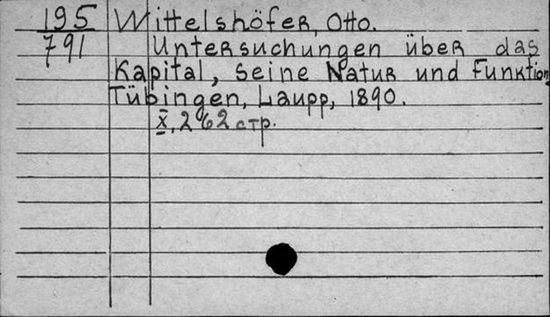 195 Wittelshöfer, Otto.
791 Untersuchungen über das
Kapital, seine Natur und Funktion
Tübingen, Laupp, 1890.
X, 262 стр.